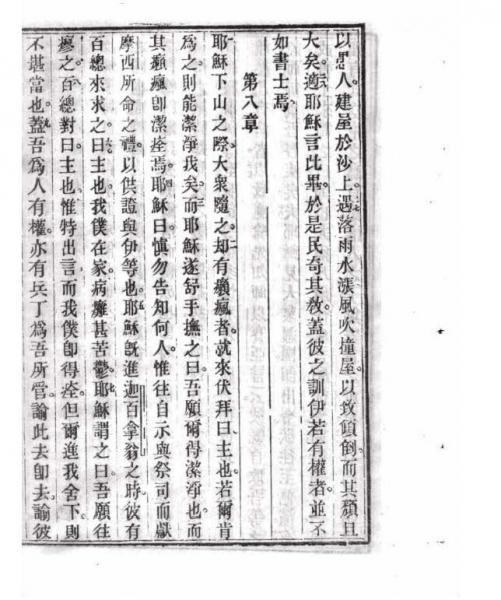 以愚人建屋於沙上。遇落雨水漲風吹撞屋。以致傾倒。而其頹且
大矣。適耶穌言此畢。於是民奇其教。蓋彼之訓伊若有權者。並不
如書士焉
第八章
耶穌下山之際。大衆隨之。却有癩瘋者。就來伏拜曰。主也。若爾肯
為之。則能潔淨我矣。而耶穌遂舒手撫之曰。吾願爾得潔淨也。而
其癩瘋即潔痊焉。耶穌曰。慎勿告知何人。惟往自示與祭司。而獻
摩西所命之禮。以供證與伊等也。耶穌既進迦百拿翁之時。彼有
百總來求之曰。主也。我僕在家。病癱甚苦鬱。耶穌謂之曰。吾願往
瘳之。百總對曰。主也。惟特出言。而我僕即得痊。但爾進我舍下。則
不堪當也。蓋吾為人有權。亦有兵丁為吾所管。諭此去即去。諭彼